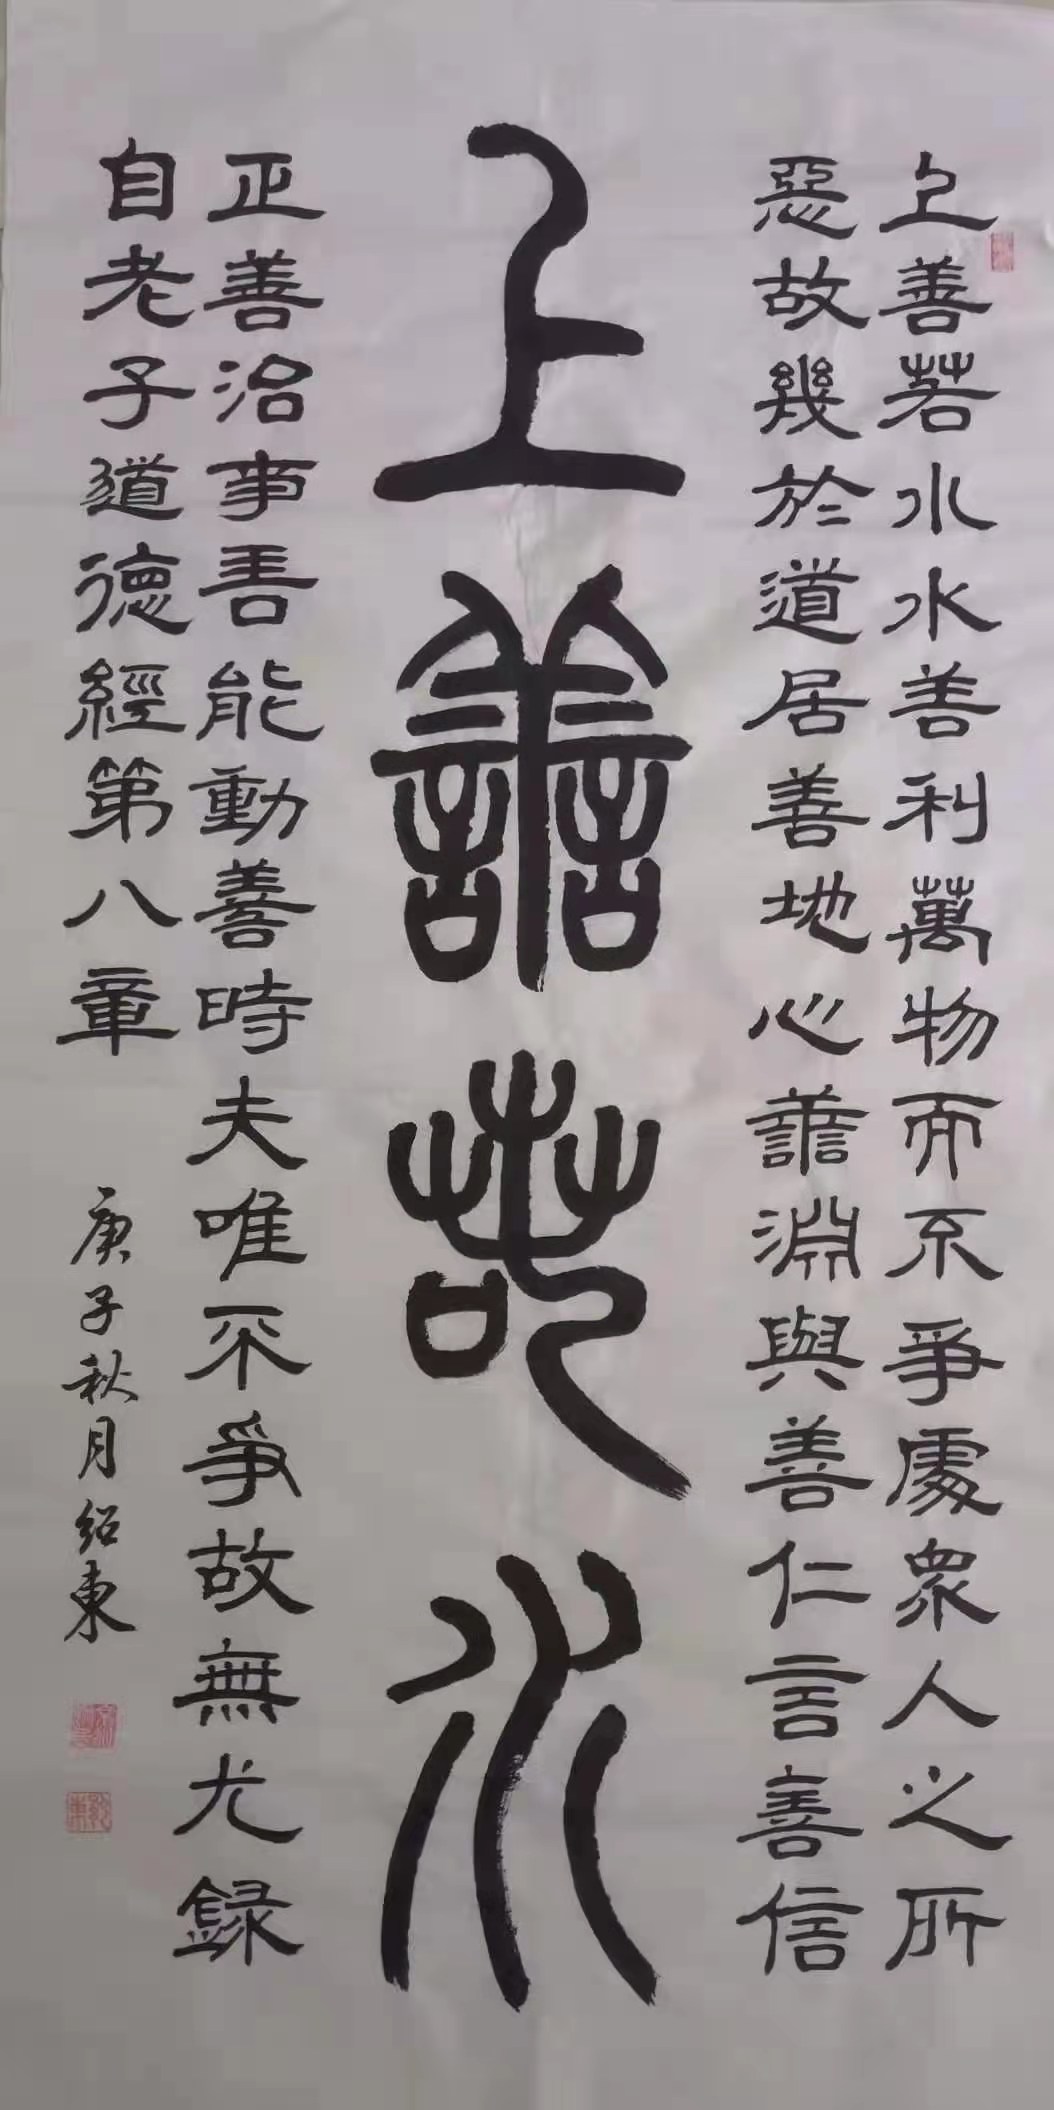 上善若水水善利萬物而不爭處眾人之所
惡故幾於道居善地心善淵與善仁言善信
上善若水
正善治事善能動善時夫唯不爭故無尤録
自老子道德經第八章 庚子秋月紹東